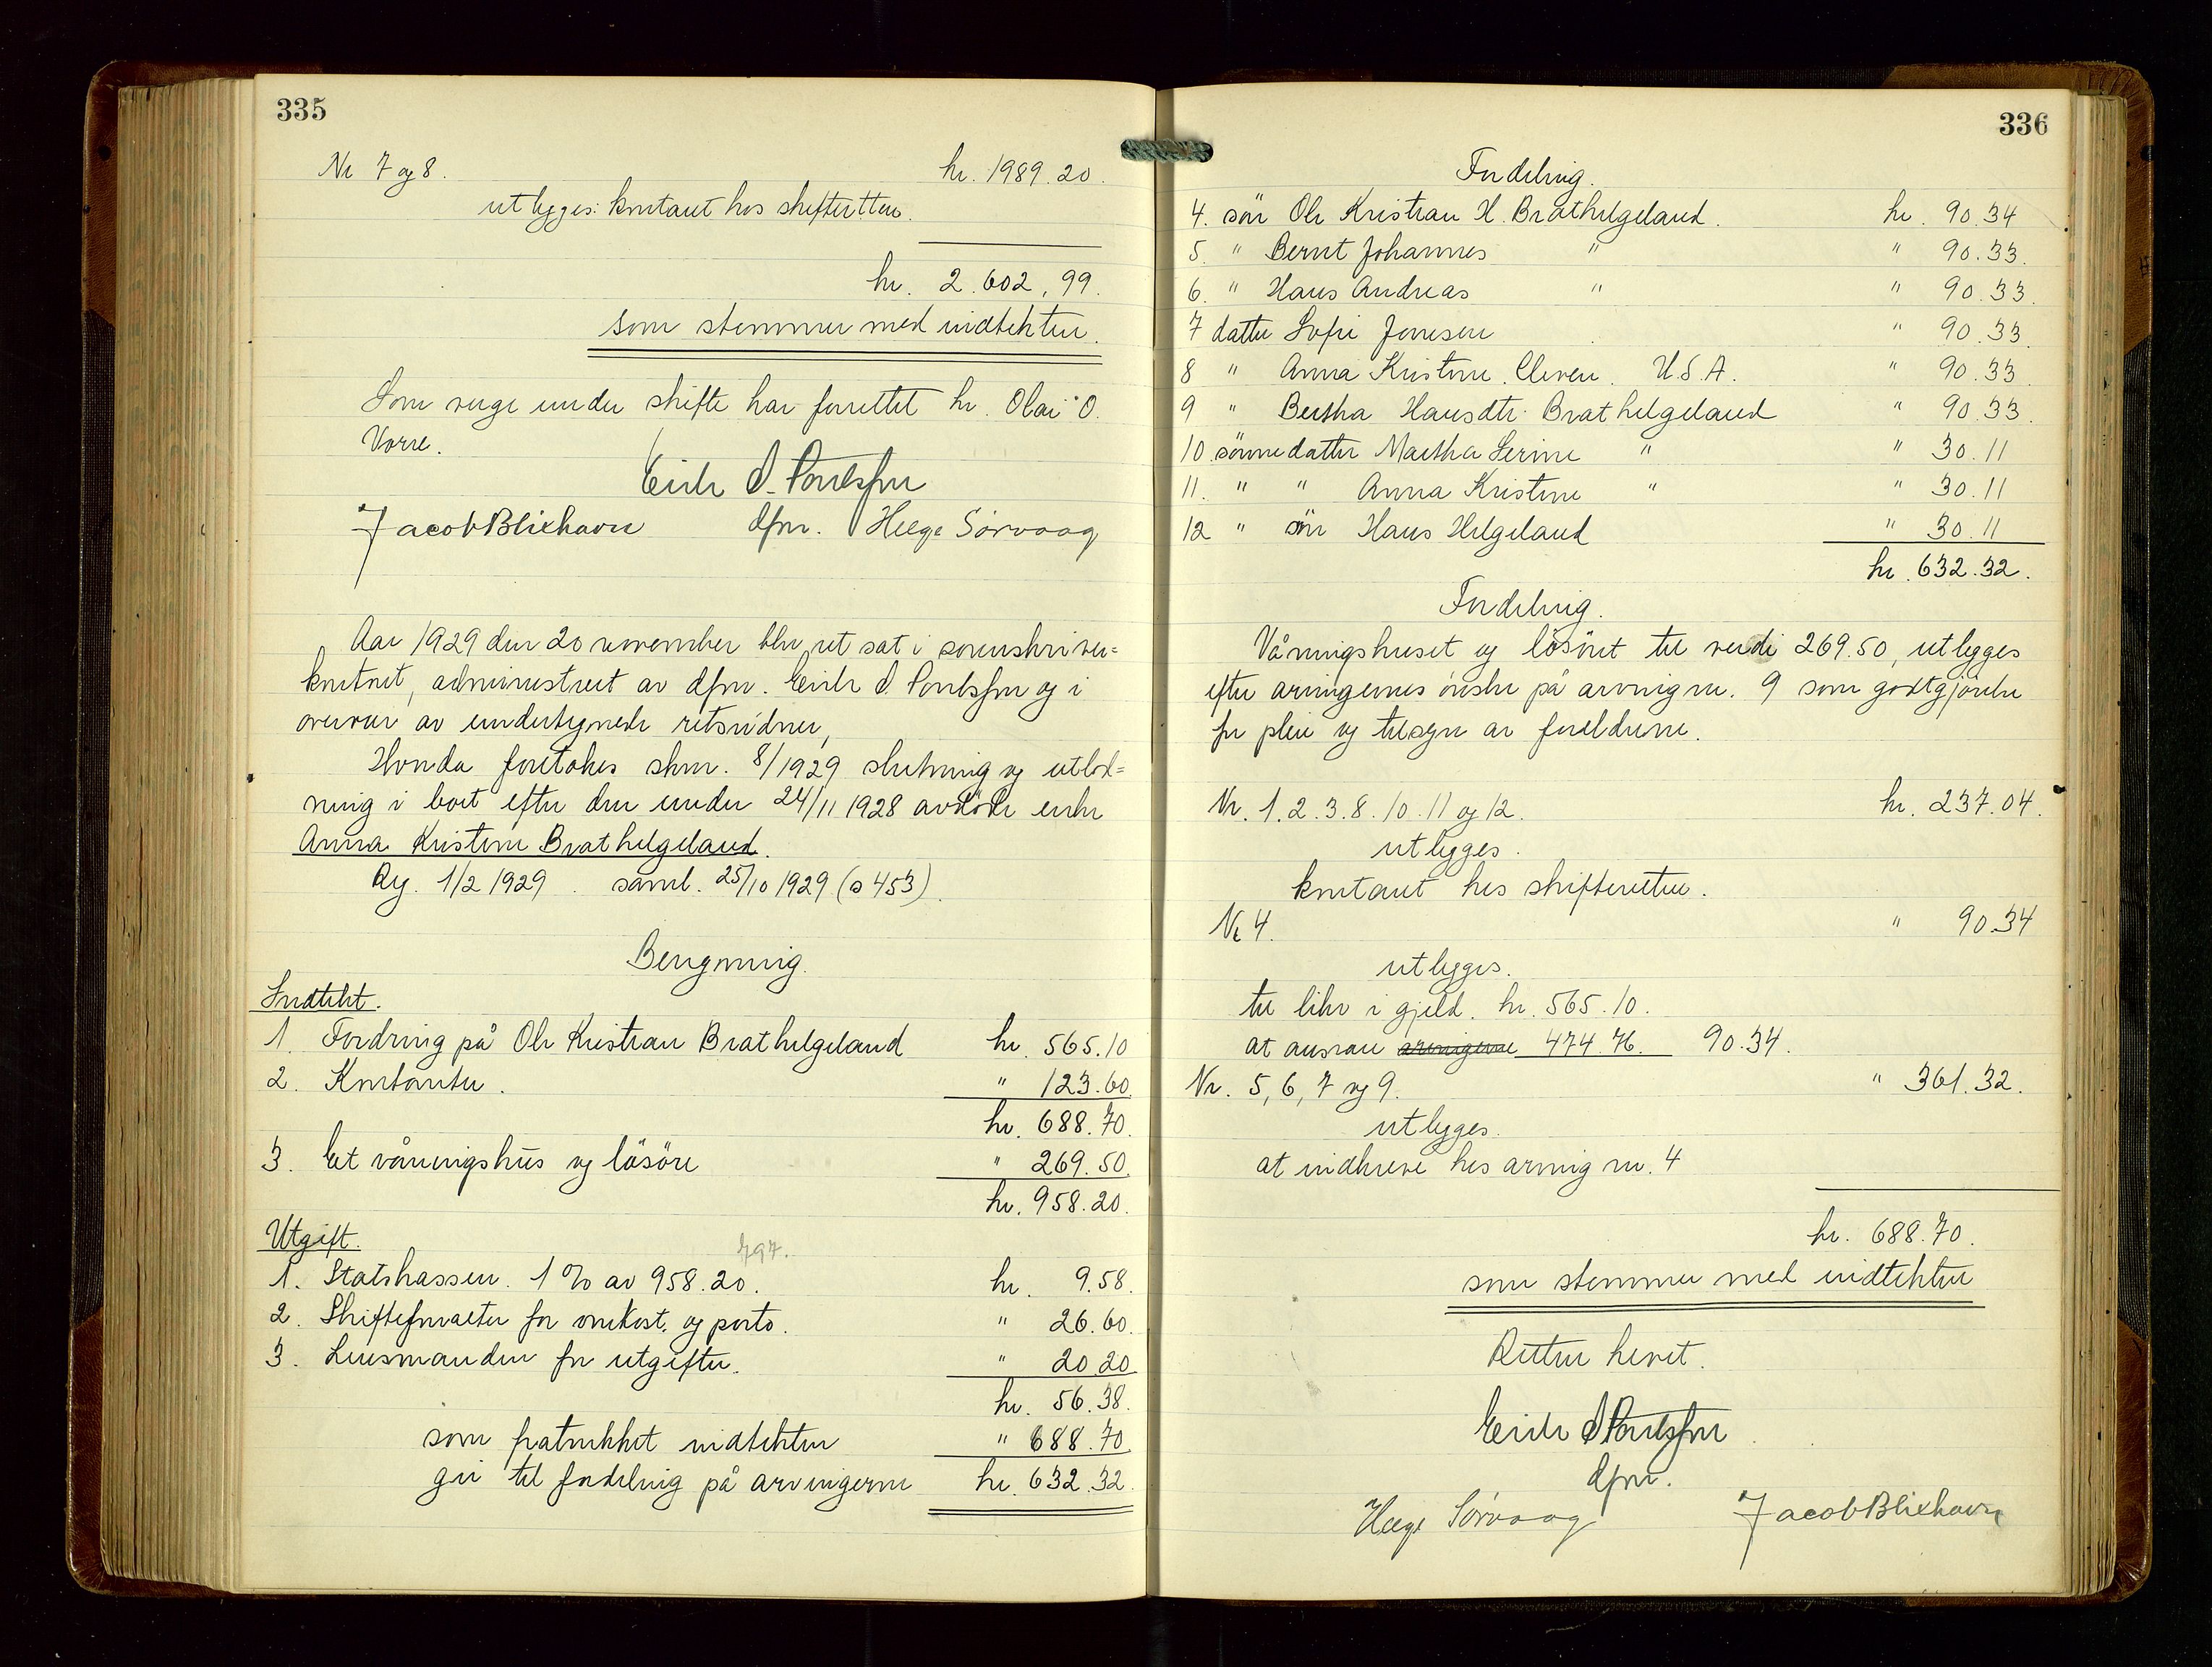 335
Nr 7 og 8. kr. 1989.20.
utlegges: kontant hos skifteretten.
kr. 2.602,99.
som stemmer med indtekten.
Som verge under skifte har forrettet hr. Olai O.
Vorre.
Eirik S. Poulsson
Jacob Blixhavn dfm. Helge Sørvaag
Aar 1929 den 20 november blev ret sat i sorenskriver=
kontoret, administrert av dfm. Eirik S. Poulsson og i
overvær av undertegnede retsvidner,
Hvorda foretokes skm. 8/1929 slutning og utlod=
ning i boet efter den under 24/11 1928 avdöde enke
Anna Kristine Brathelgeland.
Reg. 1/2 1929. saml. 25/10 1929 (s 453).
Beregning.
Indtekt.
1. Fordring på Ole Kristian Brathelgeland kr. 565.10
2. Kontanter. " 123.60.
kr. 688.70.
3. Et våningshus og lösöre " 269.50.
kr. 958.20.
Utgift.
797.
1. Statskassen. 1 % av 958.20. kr. 9.58.
2. Skifteforvalter for omkost. og porto. " 26.60.
3. Lensmanden for utgifter. " 20.20
kr. 56.38.
som fratrukket indtekten " 688.70.
gir til fordeling på arvingerne kr. 632.32.
336
Fordeling.
4. sön Ole Kristian H. Brathelgeland. kr. 90.34
5. " Bernt Johannes " " 90.33.
6. " Hans Andreas " " 90.33.
7 datter Sofie Jonesen " 90.33.
8 " Anna Kristine Cleven. U.S.A. " 90.33
9 " Bertha Hansdtr. Brathelgeland " 90.33.
10. sönnedatter Martha Serine " " 30.11
11. " " Anna Kristine " " 30.11
12 " sön Hans Helgeland " 30.11
kr. 632.32.
Fordeling.
Våningshuset og lösöret til verdi 269.50, utlegges
efter arvingernes önske på arving nr. 9 som godtgjörelse
for pleie og tilsyn av foreldrene.
Nr. 1.2.3.8.10.11 og 12. kr. 237.04.
utlegges.
kontant hos skifteretten.
Nr 4. " 90.34
utlegges.
til likv i gjeld. kr. 565.10.
at ansvare arvingerne 474.76. 90.34.
Nr. 5, 6, 7 og 9. " 361.32.
utlegges.
at indkreve hos arving nr. 4
kr. 688.70.
som stemmer med indtekten
Retten hevet.
Eirik S Poulsson
dfm.
Helge Sørvaag Jacob Blixhavn